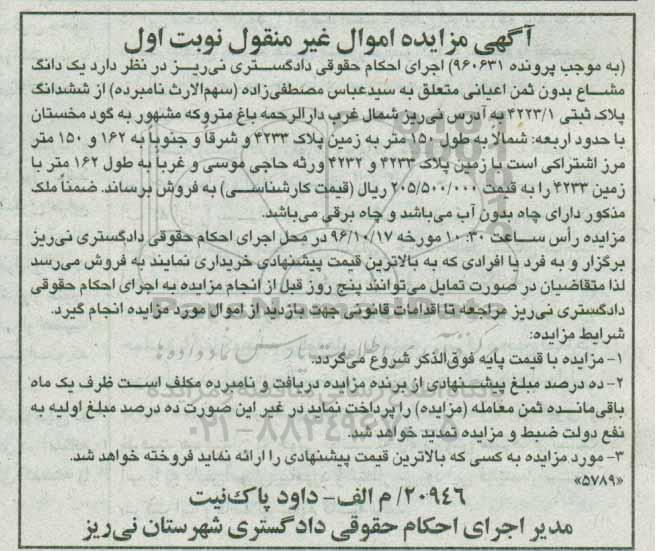 آگهی مزایده اموال غیر منقول نوبت اول
(به موجب پرونده ۹۶۰۶۳۱) اجرای احکام حقوقی دادگستری نی‌ریز در نظر دارد یک دانگ
مشاع بدون ثمن اعیانی متعلق به سیدعباس مصطفی‌زاده (سهم‌الارث نامبرده) از ششدانگ
پلاک ثبتی ۴۲۲۳/۱ به آدرس نی‌ریز شمال غرب دارالرحمه باغ متروکه مشهور به گود مخستان
با حدود اربعه: شمالاً به طول ۱۵۰ متر به زمین پلاک ۴۲۳۳ و شرقا و جنوبا به ۱۶۲ و ۱۵۰ متر
مرز اشتراکی است با زمین پلاک ۴۲۳۳ و ۴۲۳۲ ورثه حاجی موسی و غرباً به طول ۱۶۲ متر با
زمین ۴۲۳۳ را به قیمت ۲۰۵/۵۰۰/۰۰۰ ریال (قیمت کارشناسی) به فروش برساند. ضمنا ملک
مذکور دارای چاه بدون آب می‌باشد و چاه برقی می‌باشد.
مزایده رأس ساعت ۱۰:۳۰ مورخه ۹۶/۱۰/۱۷ در محل اجرای احکام حقوقی دادگستری نی‌ریز
برگزار و به فرد یا افرادی که به بالاترین قیمت پیشنهادی خریداری نمایند به فروش می‌رسد
لذا متقاضیان در صورت تمایل می‌توانند پنج روز قبل از انجام مزایده به اجرای احکام حقوقی
دادگستری نی‌ریز مراجعه تا اقدامات قانونی جهت بازدید از اموال مورد مزایده انجام گیرد.
شرایط مزایده:
۱- مزایده با قیمت پایه فوق‌الذکر شروع می‌گردد.
۲- ده درصد مبلغ پیشنهادی از برنده مزایده دریافت و نامبرده مکلف است ظرف یک ماه
باقی‌مانده ثمن معامله (مزایده) را پرداخت نماید در غیر این صورت ده درصد مبلغ اولیه به
نفع دولت ضبط و مزایده تمدید خواهد شد.
۳- مورد مزایده به کسی که بالاترین قیمت پیشنهادی را ارائه نماید فروخته خواهد شد.
«۵۷۸۹»
۲۰۹۴۶/ م الف- داود پاک‌نیت
مدیر اجرای احکام حقوقی دادگستری شهرستان نی‌ریز
ParsNamadData
۰۲۱-۸۸۳۴۹۶۷۰-۵